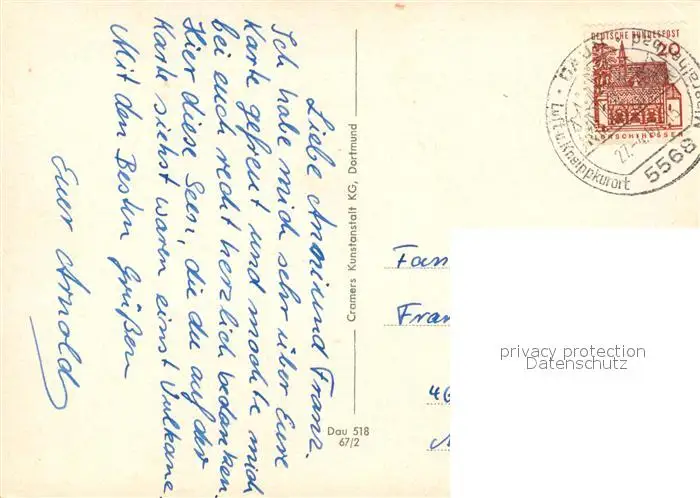 Liebe Anni und Franz.
Ich habe mich sehr über Eure
Karte gefreut und möchte mich
bei euch recht herzlich bedanken.
Hier diese Seen, die du auf der
Karte siehst waren einst Vulkane
Mit den Besten Grüßen
Euer Arnold
Cramers Kunstanstalt KG, Dortmund
Dau 518
67/2
DEUTSCHE BUNDESPOST
20
DAUN
Luft u. Kneippkurort
5568
27.
Fam
Fran
46
privacy protection
Datenschutz